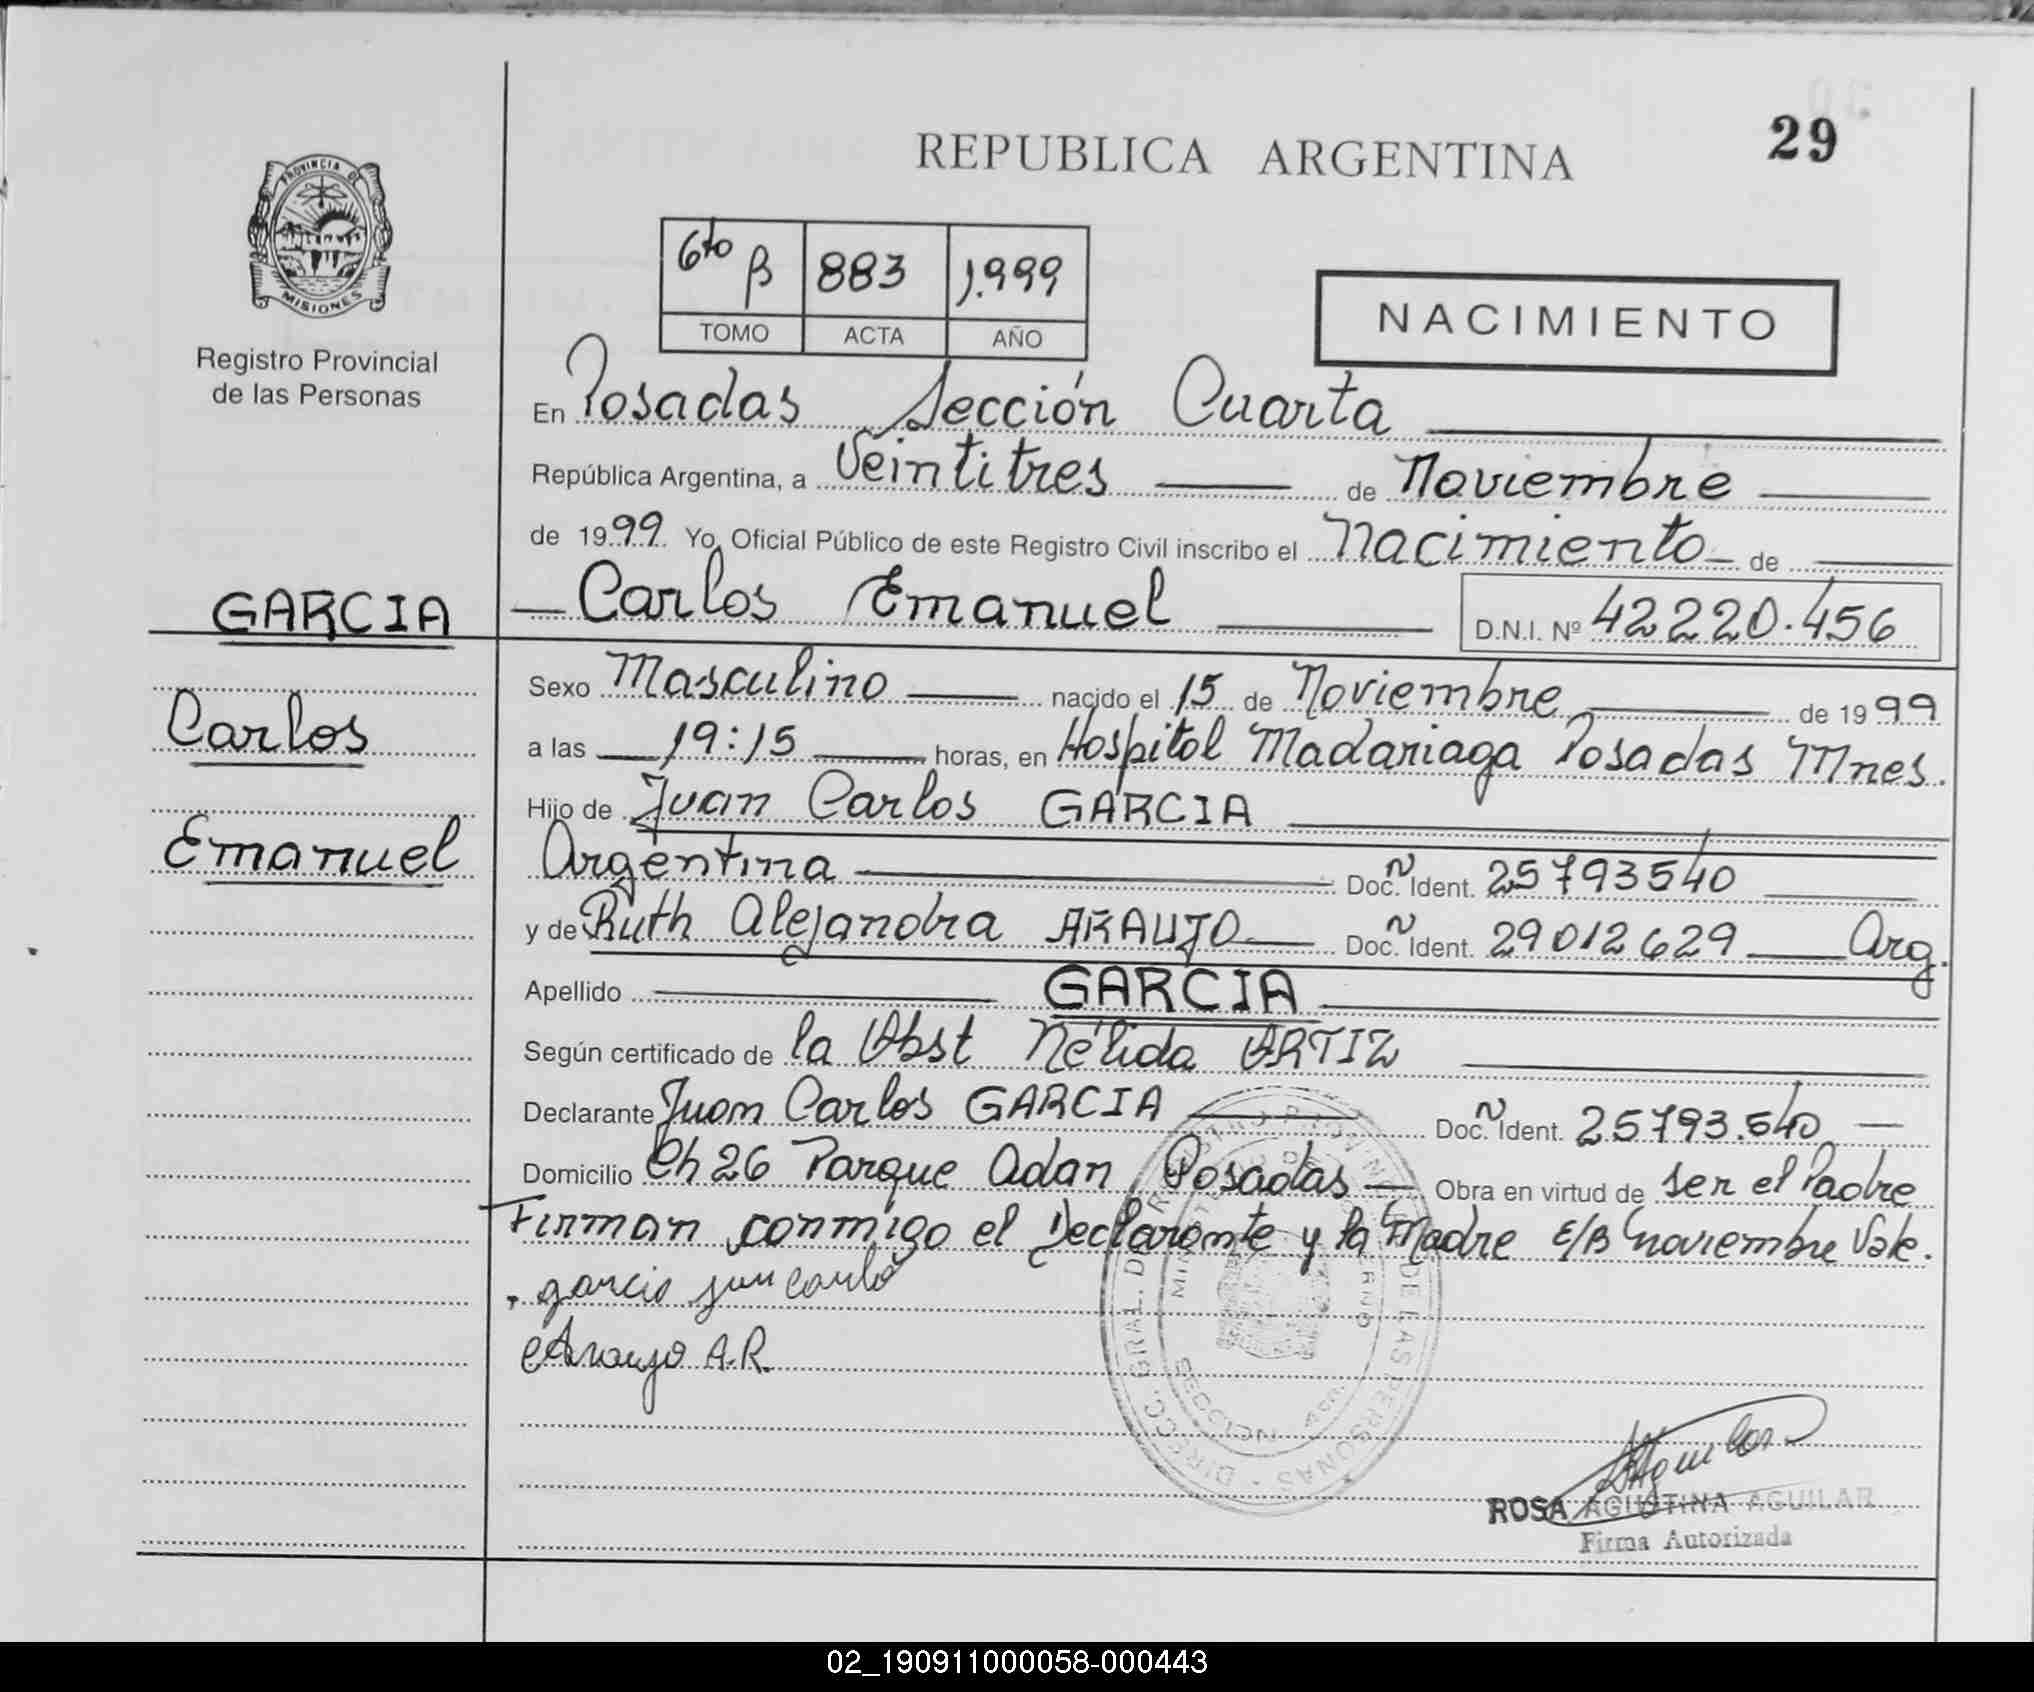 29
REPUBLICA ARGENTINA
PROVINCIA DE
MISIONES
Registro Provincial
de las Personas
6to B 883 1.999
TOMO ACTA AÑO
NACIMIENTO
En Posadas Sección Cuarta
República Argentina, a Veintitres de Noviembre
de 1999 Yo, Oficial Público de este Registro Civil inscribo el Nacimiento de
GARCIA
Carlos
Emanuel
Carlos Emanuel D.N.I. Nº 42220.456
Sexo Masculino nacido el 15 de Noviembre de 1999
a las 19:15 horas, en Hospital Madariaga Posadas Mnes.
Hijo de Juan Carlos GARCIA
Argentina Doc. Ident. 25793540
y de Ruth Alejandra ARAUJO Doc. Ident. 29012629 Arg.
Apellido GARCIA
Según certificado de la Obst Nélida ARTIZ
Declarante Juan Carlos GARCIA Doc. Ident. 25793.540
Domicilio Ch 26 Parque Adan Posadas Obra en virtud de ser el Padre
Firman conmigo el Declarante y la Madre E/B noviembre Vale.
garcia juan carlo
Araujo A.R.
DIRECC. GRAL. DE REGISTRO PROVINCIAL DE LAS PERSONAS
ROSA AGUSTINA AGUILAR
Firma Autorizada
02_190911000058-000443